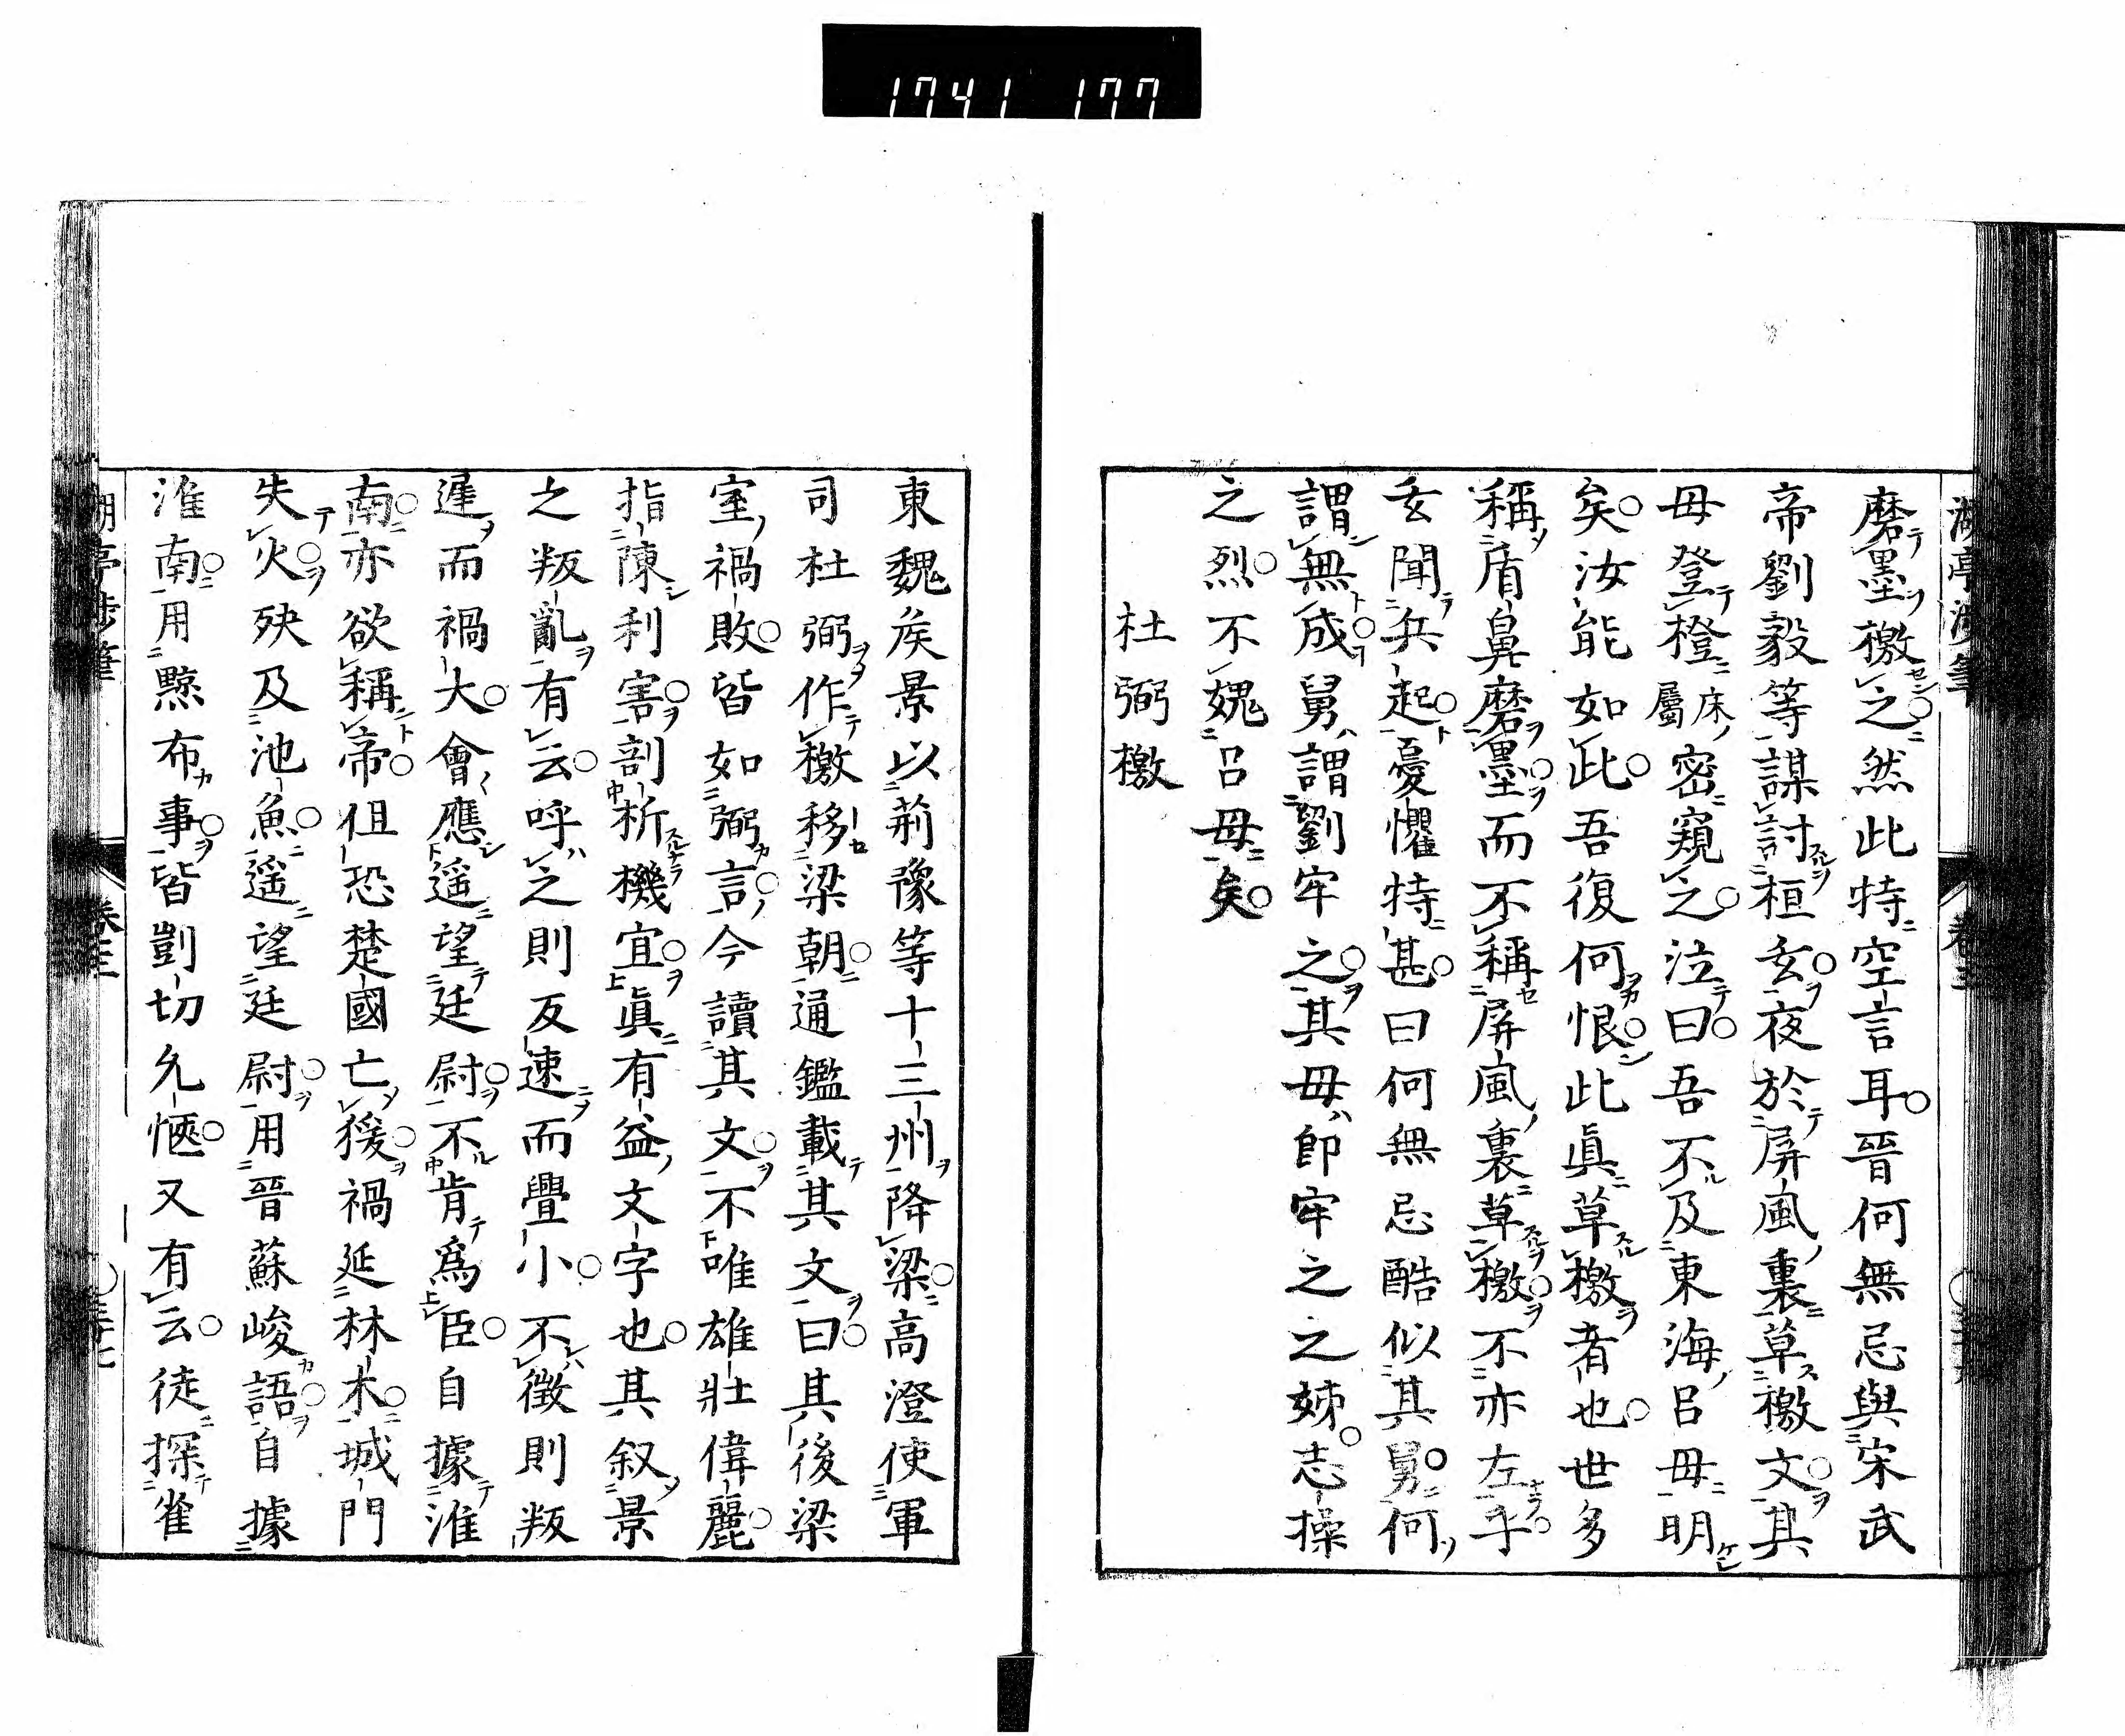 1741 177
磨墨檄之然此特空言耳晉何無忌與宋武
帝劉毅等謀討桓玄夜於屏風裏草檄文其
母登橙床屬密窺之泣曰吾不及東海呂母明
矣汝能如此吾復何恨此眞草檄者也世多
稱盾鼻磨墨而不稱屏風裏草檄不亦左乎
玄聞兵起憂懼特甚曰何無忌酷似其舅何
謂無成舅謂劉牢之其母即牢之之姊志操
之烈不媿呂母矣
杜弼檄
東魏矦景以荊豫等十三州降梁高澄使軍
司杜弼作檄移梁朝通鑑載其文曰其後梁
室禍敗皆如弼言今讀其文不唯雄壯偉麗
指陳利害剖析機宜眞有益文字也其叙景
之叛亂有云呼之則反速而釁小不徵則叛
遲而禍大會應遥望廷尉不肯爲臣自據淮
南亦欲稱帝但恐楚國亡猨禍延林木城門
失火殃及池魚遥望廷尉用晉蘇峻語自據
淮南用黥布事皆剴切允愜又有云徒探雀